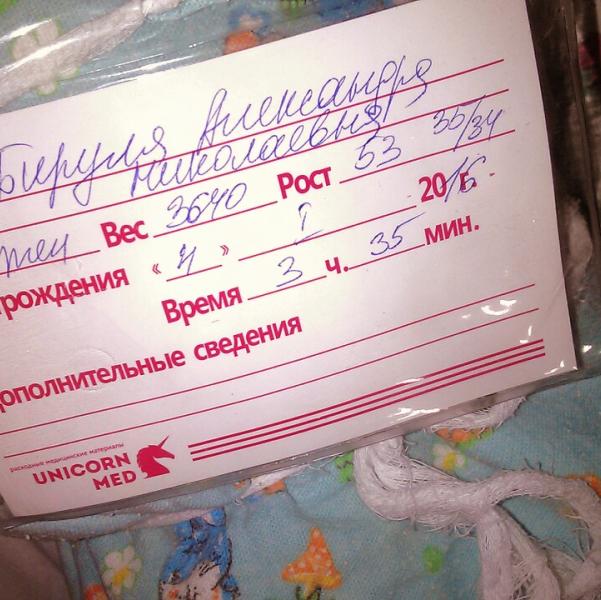 Бируля Александра
Николаевна
жен Вес 3640 Рост 53 35/34
рождения « 4 » I 2016 г.
Время 3 ч. 35 мин.
дополнительные сведения
расходные медицинские материалы
UNICORN
MED